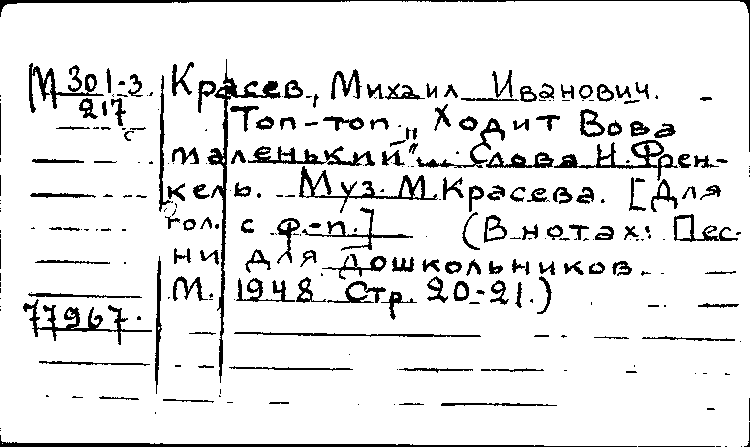 М 301-3 Красев, Михаил Иванович.
217 Топ-топ. „Ходит Вова
маленький"... Слова Н. Френ-
кель. Муз. М. Красева. [Для
гол. с ф.-п.] (В нотах: Пес-
ни для дошкольников.
М. 1948 Стр. 20-21.)
77967.